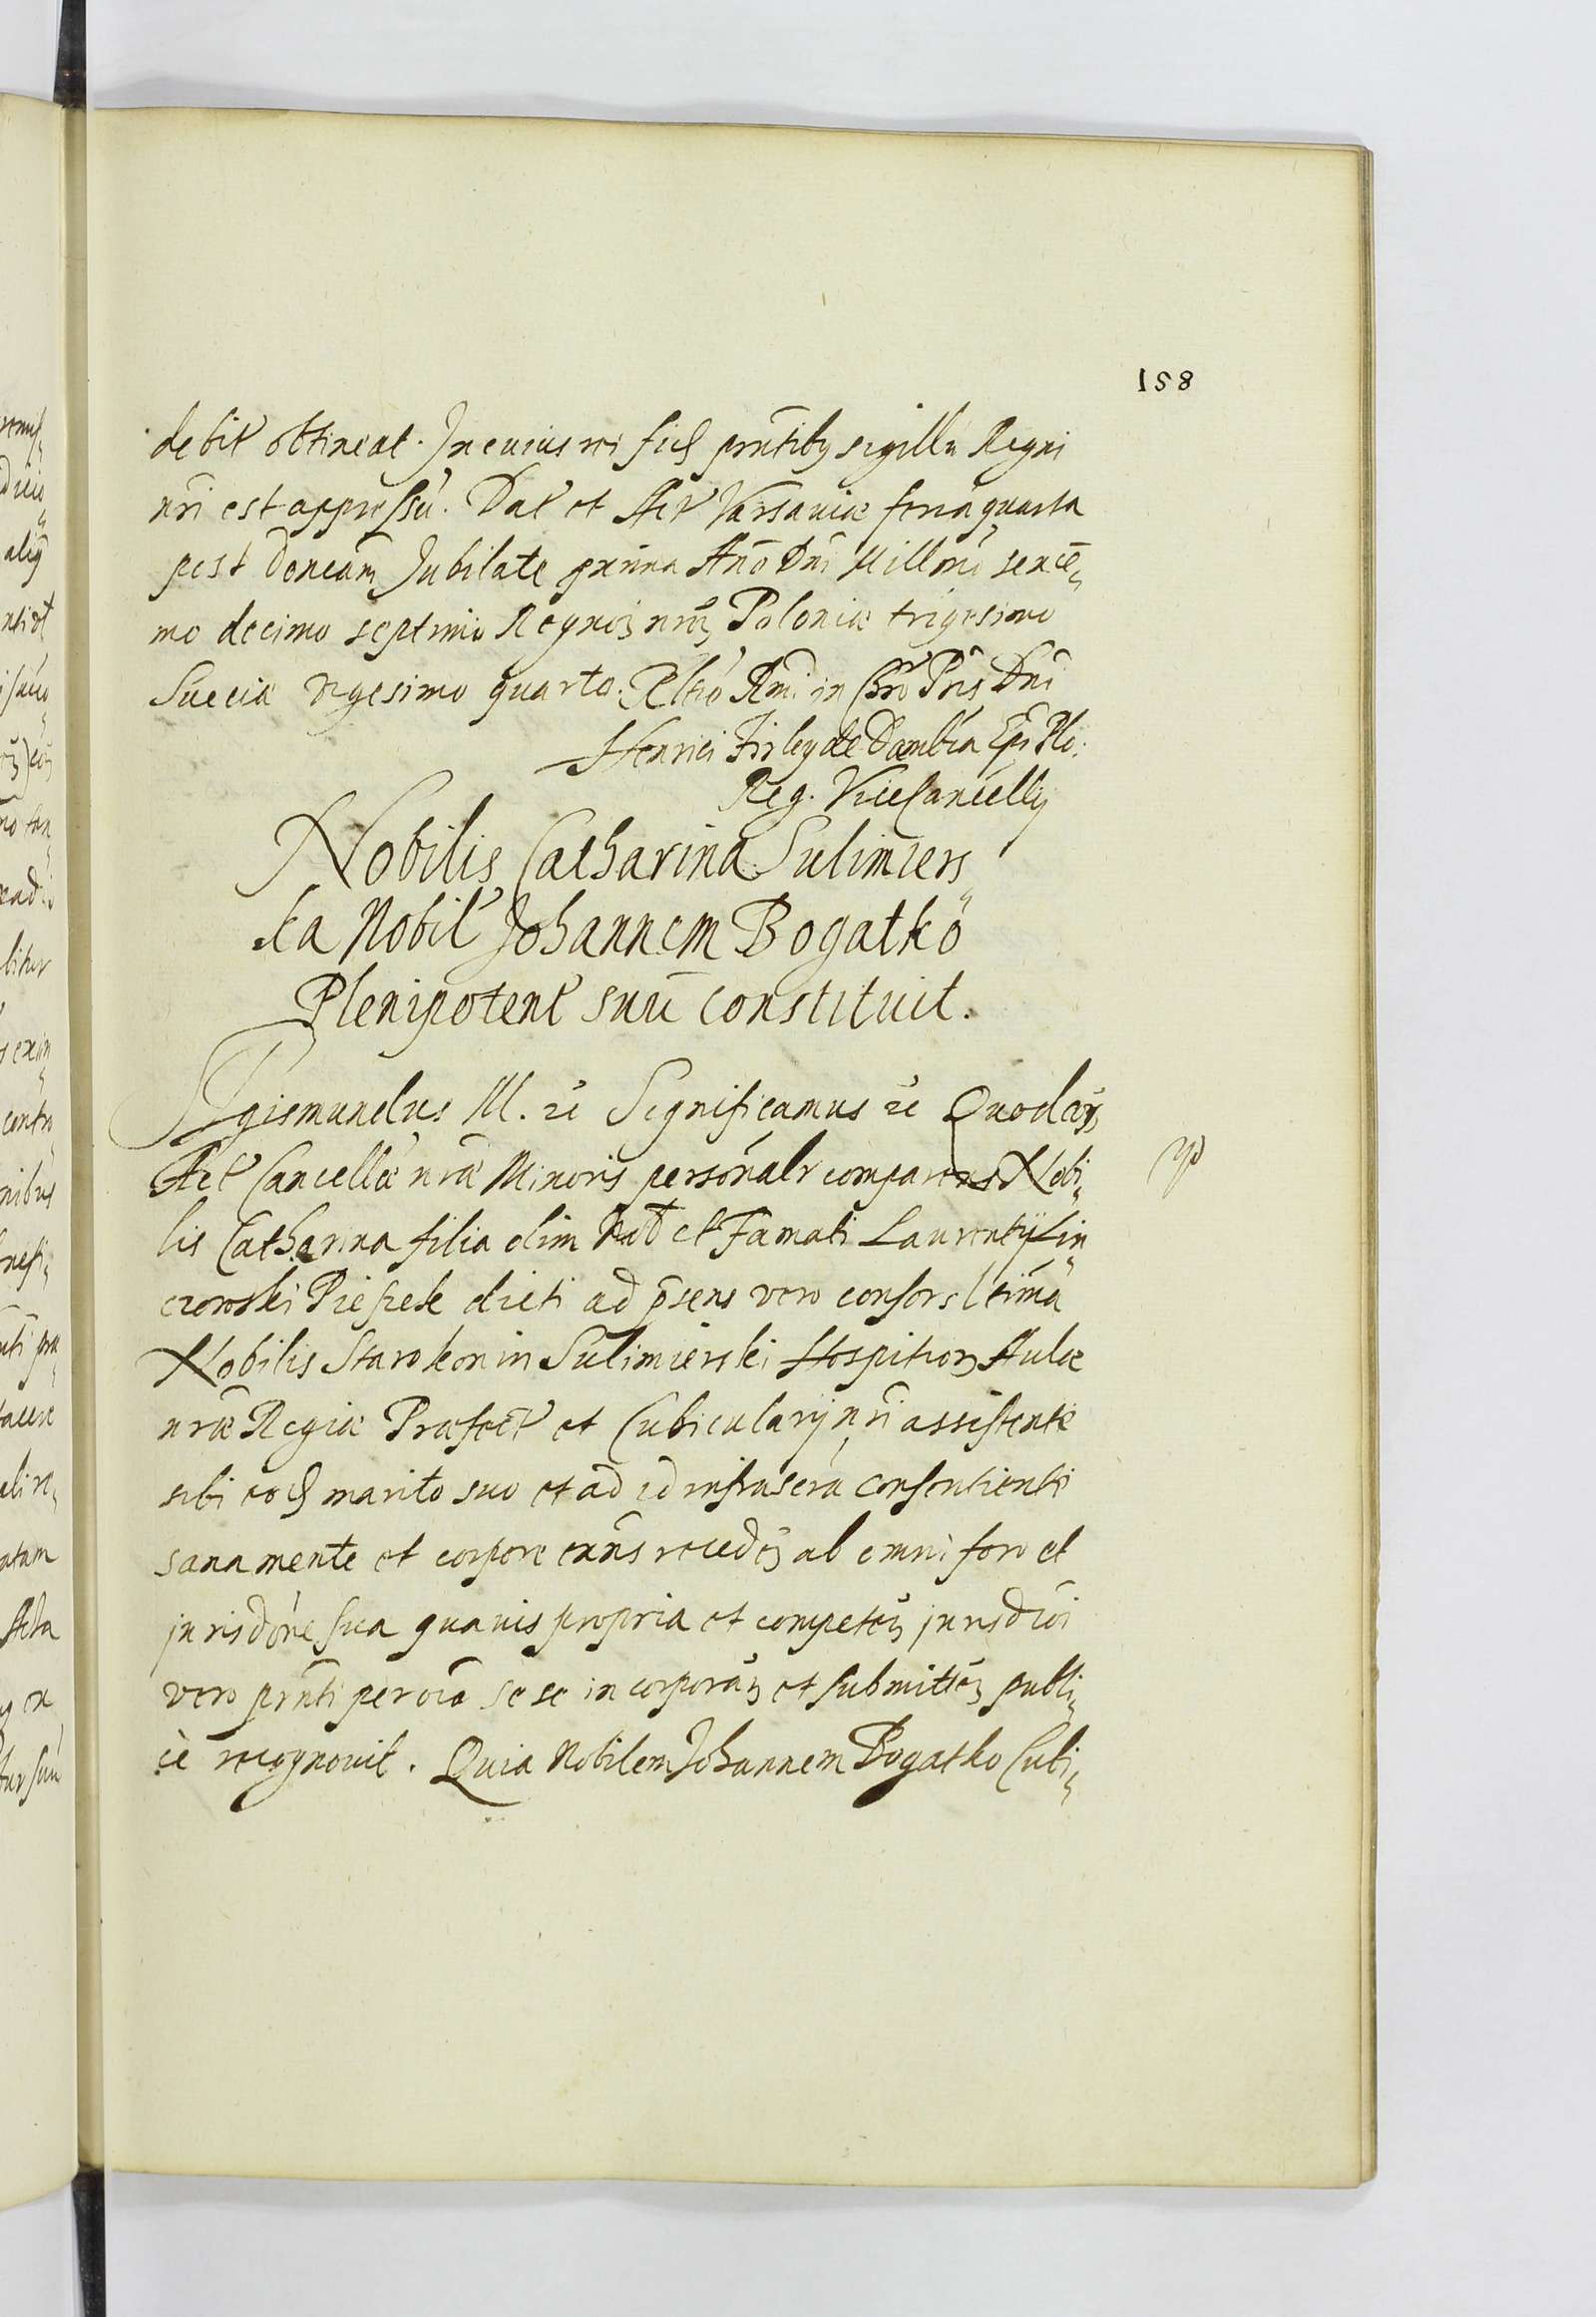 158
debit obtineat. In cuius rei fid prntibq sigillu Regni
nri est appressu. Dat et Act Varsaviæ feria quarta
post Donicam Jubilate proxima Ano Dni Millmo sexce„
mo decimo septimo Regnoz nroz Poloniæ trigesimo
Sueciæ vigesimo quarto. Rltio Rmi in Chro Pris Dni
Henrici Firley de Dambia Epi Plo.
Reg. ViceCancellij
Nobilis Catharina Sulimiers„
ka Nobil Johannem Bogatko
Plenipotent suu constituit.
Sigismundus III. ec Significamus ec Quod cor
Act Cancellæ nræ Minoris personalr comparens Nobi„
lis Catharina filia olim et Famati Laurentij Lin„
czowski dicti ad psens vero consors ltima
Nobilis Starokonin Sulimierski Hospitior Aulæ
nræ Regiæ Præfect et Cubicularij nri assistente
sibi eod marito suo et ad id infrascra consentiente
sana mente et corpore exns recedez ab omni foro et
jurisdone sua quavis propria et competez jurisdioi
vero prnti per oia sese incorporaz et submittez publi„
ce recognovit. Quia Nobilem Johannem Bogatko Cubi„